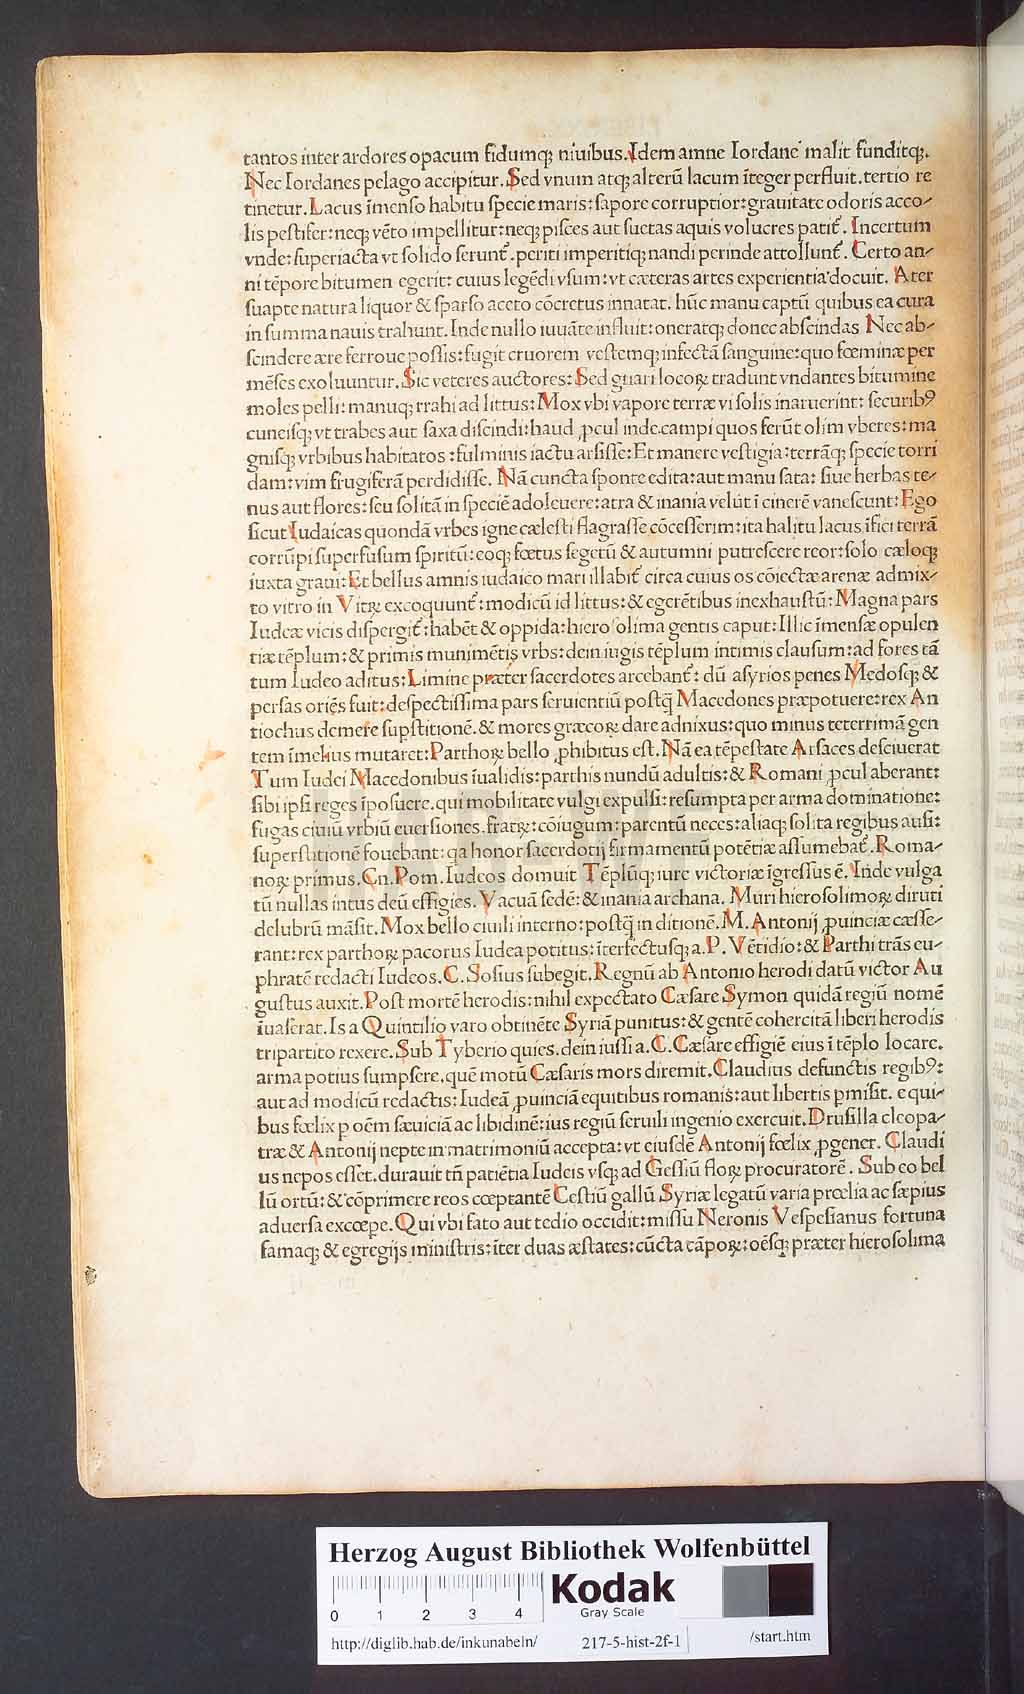 tantos inter ardores opacum fidumq; niuibus. Idem amne Iordanē malit funditq;.
Nec Iordanes pelago accipitur. Sed vnum atq; alterū lacum īteger perfluit. tertio re
tinetur. Lacus īmenso habitu specie maris: sapore corruptior: grauitate odoris acco-
lis pestifer: neq; vēto impellitur: neq; pisces aut suetas aquis volucres patit᷑. Incertum
vnde: superiacta vt solido ferunt᷑. periti imperitiq; nandi perinde attollunt᷑. Certo an-
ni tēpore bitumen egerit: cuius legēdi vsum: vt cæteras artes experientia docuit. Ater
suapte natura liquor & sparso aceto cōcretus innatat. hūc manu captū quibus ea cura
in summa nauis trahunt. Inde nullo iuuāte influit: oneratq; donec abscindas Nec ab-
scindere ære ferroue possis: fugit cruorem vestemq; infectā sanguine: quo fœminæ per
mēses exoluuntur. Sic veteres auctores: Sed gnari locoꝝ tradunt vndantes bitumine
moles pelli: manuq; trahi ad littus: Mox vbi vapore terræ vi solis inaruerint: securibꝰ
cuneisq; vt trabes aut saxa discindi: haud ꝓcul inde campi quos ferūt olim vberes: ma
gnisq; vrbibus habitatos: fulminis iactu arsisse: Et manere vestigia: terrāq; specie torri
dam: vim frugiferā perdidisse. Nā cuncta sponte edita: aut manu sata: siue herbas te-
nus aut flores: seu solitā in speciē adoleuere: atra & inania velut ī cinerē vanescunt: Ego
sicut Iudaicas quondā vrbes igne cælesti flagrasse cōcesserim: ita halitu lacus īfici terrā
corrūpi superfusum spiritū: eoq; fœtus segetū & autumni putrescere reor: solo cæloq;
iuxta graui: Et bellus amnis iudaico mari illabit᷑ circa cuius os cōiectæ arenæ admix-
to vitro in Vitꝝ excoquunt᷑: modicū id littus: & egerētibus inexhaustū: Magna pars
Iudeæ vicis dispergit᷑: habēt & oppida: hierosolima gentis caput: Illic īmensæ opulen
tiæ tēplum: & primis munimētis vrbs: dein iugis tēplum intimis clausum: ad fores tā
tum Iudeo aditus: Limine præter sacerdotes arcebant᷑: dū asyrios penes Medosq; &
persas oriēs fuit: despectissima pars seruientiū postq̄ Macedones præpotuere: rex An
tiochus demere supstitionē. & mores græcoꝝ dare adnixus: quo minus teterrimā gen
tem īmelius mutaret: Parthoꝝ bello ꝓhibitus est. Nā ea tēpestate Arsaces desciuerat
Tum Iudei Macedonibus īualidis: parthis nundū adultis: & Romani ꝓcul aberant:
sibi ipsi reges īposuere. qui mobilitate vulgi expulsi: resumpta per arma dominatione:
fugas ciuiū vrbiū euersiones. fratꝝ: cōiugum: parentū neces: aliaq; solita regibus ausi:
superstitionē fouebant: qa honor sacerdotij firmamentū potētiæ assumebat᷑. Roma-
noꝝ primus. Cn. Pom. Iudeos domuit Tēplūq; iure victoriæ īgressus ē. Inde vulga
tū nullas intus deū effigies. Vacuā sedē: & inania archana. Muri hierosolimoꝝ diruti
delubrū māsit. Mox bello ciuili interno: postq̄ in ditionē. M. Antonij ꝓuinciæ cæsse-
rant: rex parthoꝝ pacorus Iudea potitus: īterfectusq; a. P. Vētidio: & Parthi trās eu-
phratē redacti Iudeos. C. Sosius subegit. Regnū ab Antonio herodi datū victor Au
gustus auxit. Post mortē herodis: nihil expectato Cæsare Symon quidā regiū nomē
īuaserat. Is a Quintilio varo obtinēte Syriā punitus: & gentē cohercitā liberi herodis
tripartito rexere. Sub Tyberio quies. dein iussi a. C. Cæsare effigiē eius ī tēplo locare.
arma potius sumpsere. quē motū Cæsaris mors diremit. Claudius defunctis regibꝰ:
aut ad modicū redactis: Iudeā ꝓuinciā equitibus romanis: aut libertis pmisit. e qui-
bus fœlix p oēm sæuiciā ac libidinē: ius regiū seruili ingenio exercuit. Drusilla cleopa-
træ & Antonij nepte in matrimoniū accepta: vt eiusdē Antonij fœlix ꝓgener. Claudi
us nepos esset. durauit tn̄ patiētia Iudeis vsq; ad Gessiū floꝝ procuratorē. Sub eo bel
lū ortū: & cōprimere reos cœptantē Cestiū gallū Syriæ legatū varia prœlia ac sæpius
aduersa excœpe. Qui vbi fato aut tedio occidit: missu Neronis Vespesianus fortuna
famaq; & egregijs ministris: īter duas æstates: cūcta cāpoꝝ: oēsq; præter hierosolima
Herzog August Bibliothek Wolfenbüttel
Kodak
Gray Scale
0 1 2 3 4
http://diglib.hab.de/inkunabeln/ 217-5-hist-2f-1 /start.htm